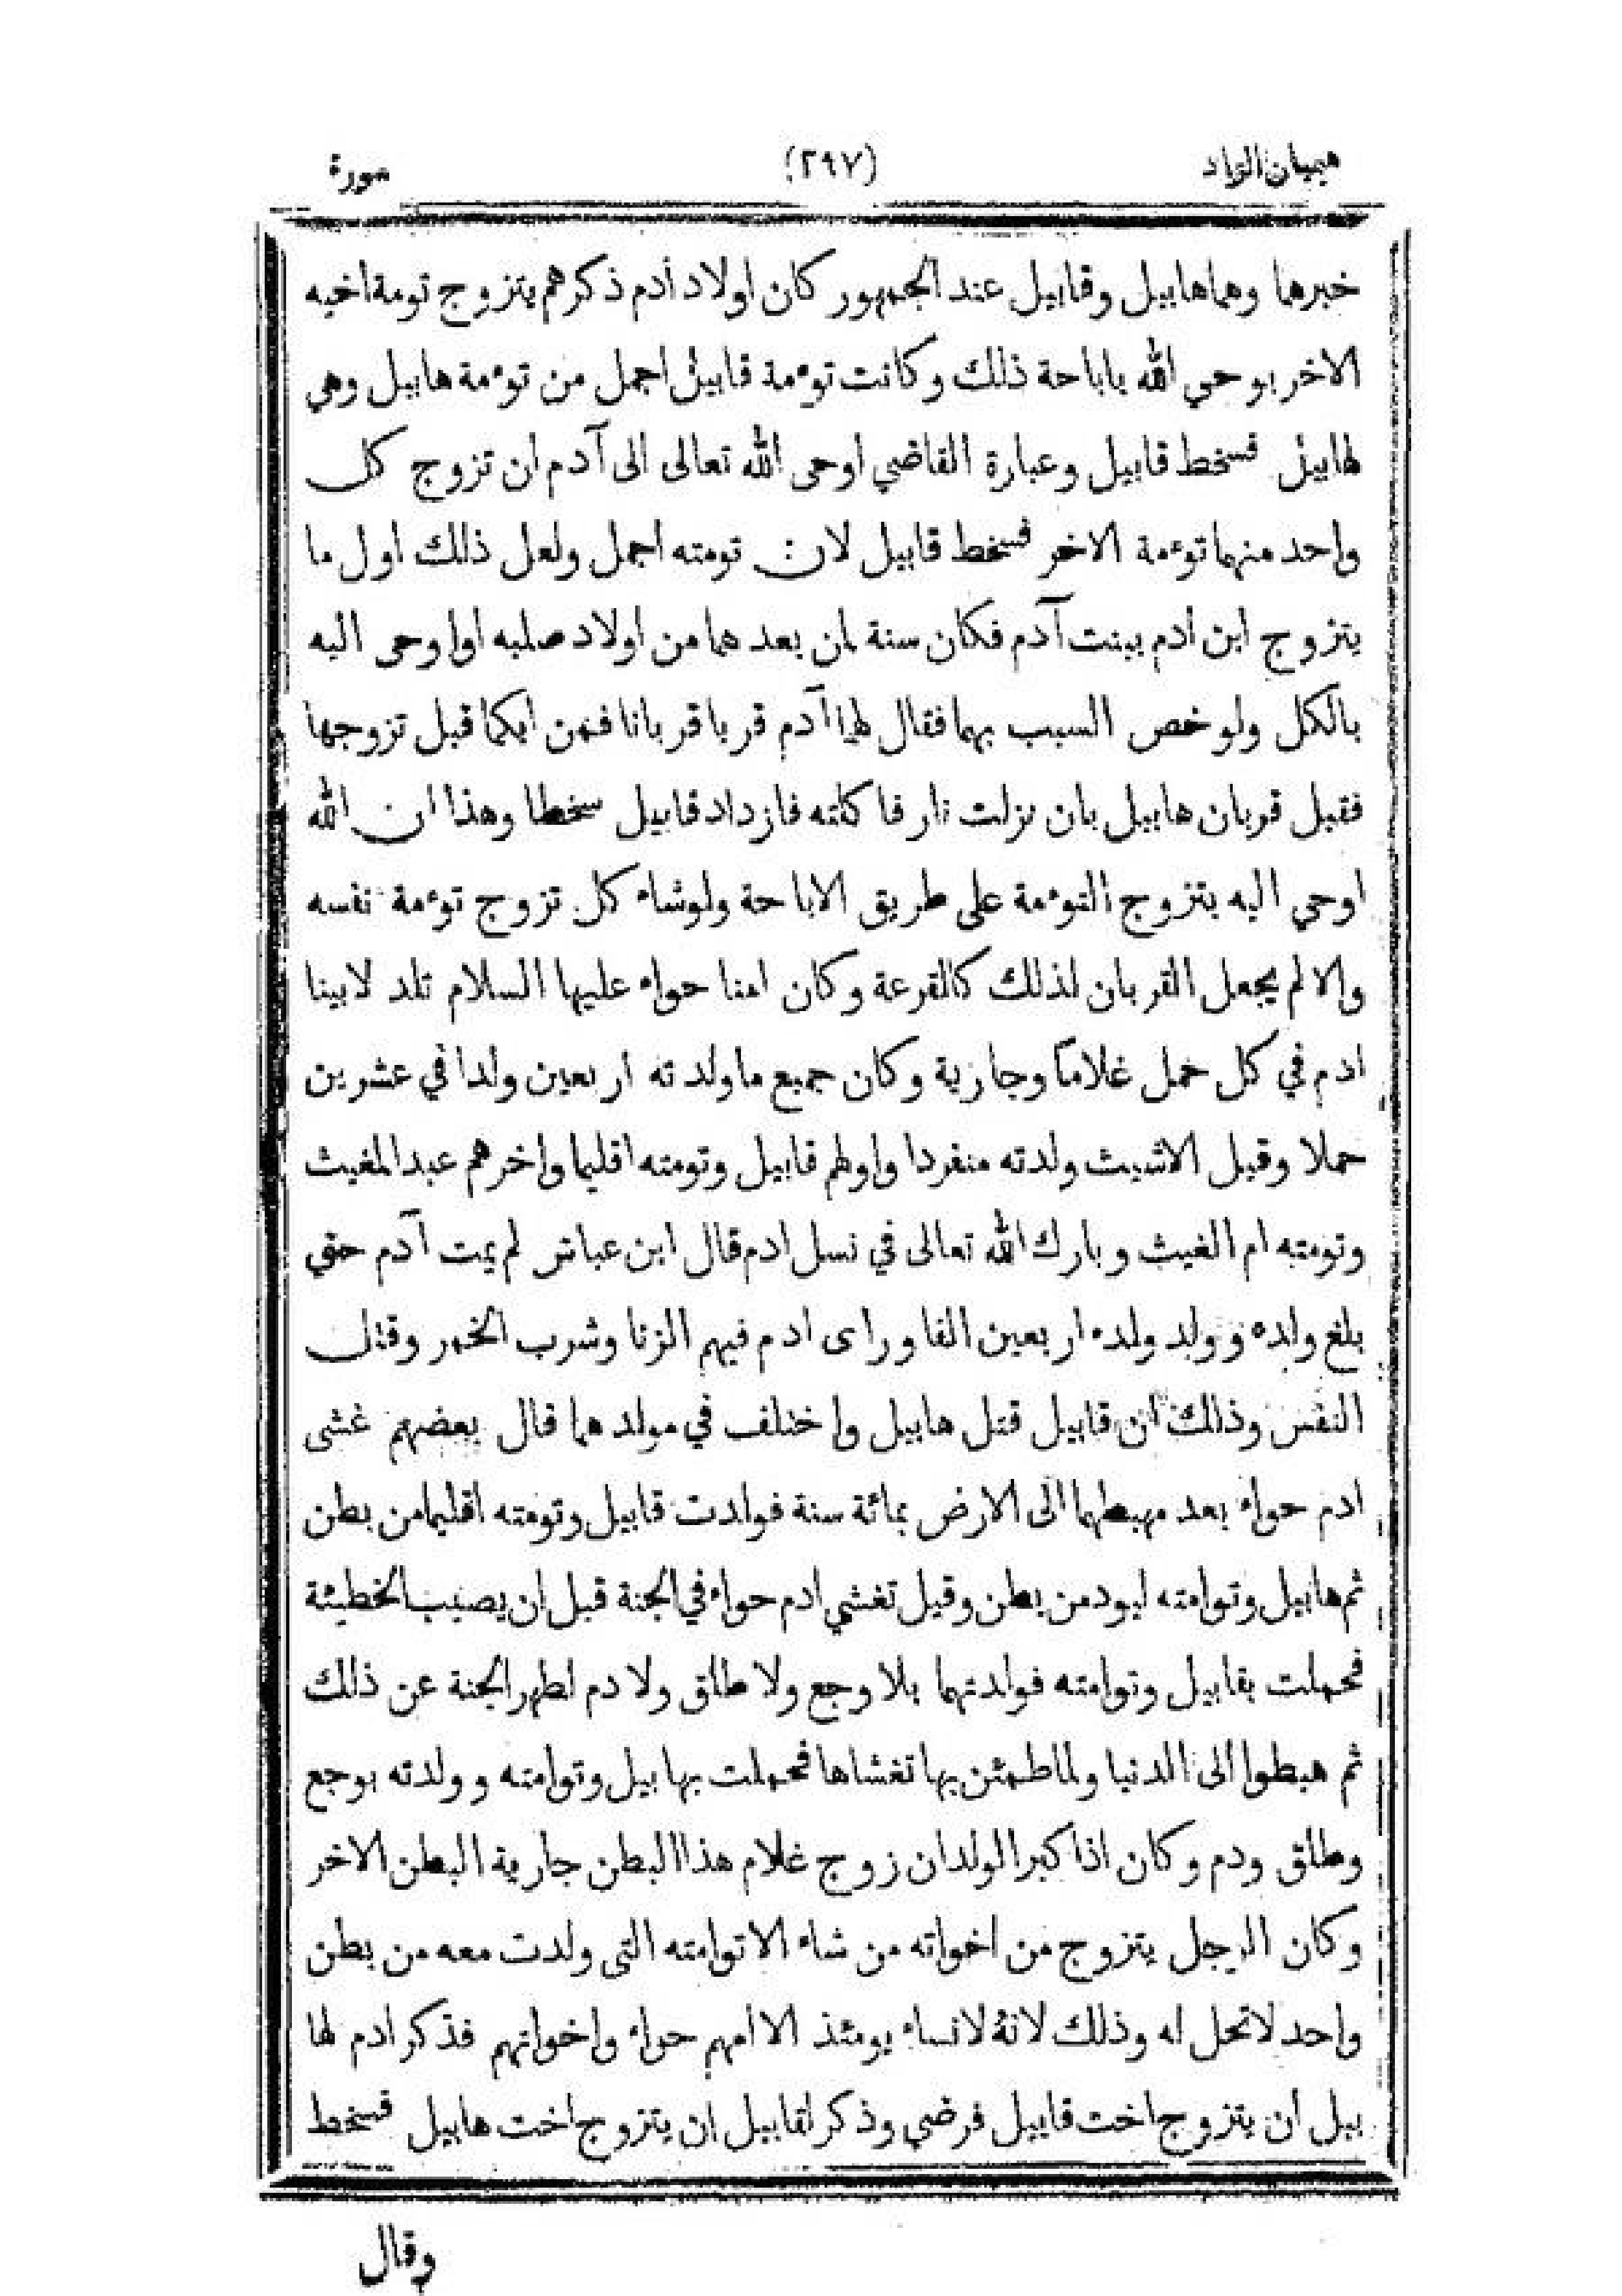 هيميان الزاد (٢٩٧) سورة
خبرهما وهما هابيل وقابيل عند الجمهور كان اولاد أدم ذكرهم يتزوج تومة اخيه
الاخر بوحي الله باباحة ذلك وكانت توءمة قابيل اجمل من توءمة هابيل وهي
لهابيل فسخط قابيل وعبارة القاضي اوحى الله تعالى الى آدم ان تزوج كل
واحد منهما توءمة الاخر فسخط قابيل لان تومته اجمل ولعل ذلك اول ما
يتزوج ابن ادم ببنت آدم فكان سنة لمن بعدهما من اولاد صلبه او اوحى اليه
بالكل ولو خص السبب بهما فقال لهما آدم قربا قربانا فمن ايكما قبل تزوجها
فقبل قربان هابيل بان نزلت نار فاكلته فازداد قابيل سخطا وهذا ان الله
اوحي اليه بتزوج التوءمة على طريق الاباحة ولو شاء كل تزوج توءمة نفسه
والا لم يجعل القربان لذلك كالقرعة وكان امنا حواء عليها السلام تلد لابينا
ادم في كل حمل غلاما وجارية وكان جميع ما ولدته اربعين ولدا في عشرين
حملا وقيل الا شيث ولدته منفردا واولهم قابيل وتومته اقليما واخرهم عبد المغيث
وتومته ام الغيث وبارك الله تعالى في نسل ادم قال ابن عباس لم يمت آدم حتى
بلغ ولده وولد ولده اربعين الفا وراى ادم فيهم الزنا وشرب الخمر وقتل
النفس وذلك ان قابيل قتل هابيل واختلف في مولدهما قال بعضهم غشى
ادم حواء بعد مهبطهما الى الارض بمائة سنة فولدت قابيل وتومته اقليما من بطن
ثم هابيل وتوامته ليود من بطن وقيل تغشي ادم حواء في الجنة قبل ان يصيب الخطيئة
فحملت بقابيل وتوامته فولدتهما بلا وجع ولا طلق ولا دم لطهر الجنة عن ذلك
ثم هبطوا الى الدنيا ولما طمئن بها تغشاها فحملت بهابيل وتوامته وولدته بوجع
وطلق ودم وكان اذا كبر الولدان زوج غلام هذا البطن جارية البطن الاخر
وكان الرجل يتزوج من اخواته من شاء الا توامته التى ولدت معه من بطن
واحد لا تحل له وذلك لانه لا نساء يومئذ الا امهم حواء واخواتهم فذكر ادم لها
بيل أن يتزوج اخت قابيل فرضي وذكر لقابيل ان يتزوج اخت هابيل فسخط
وقال